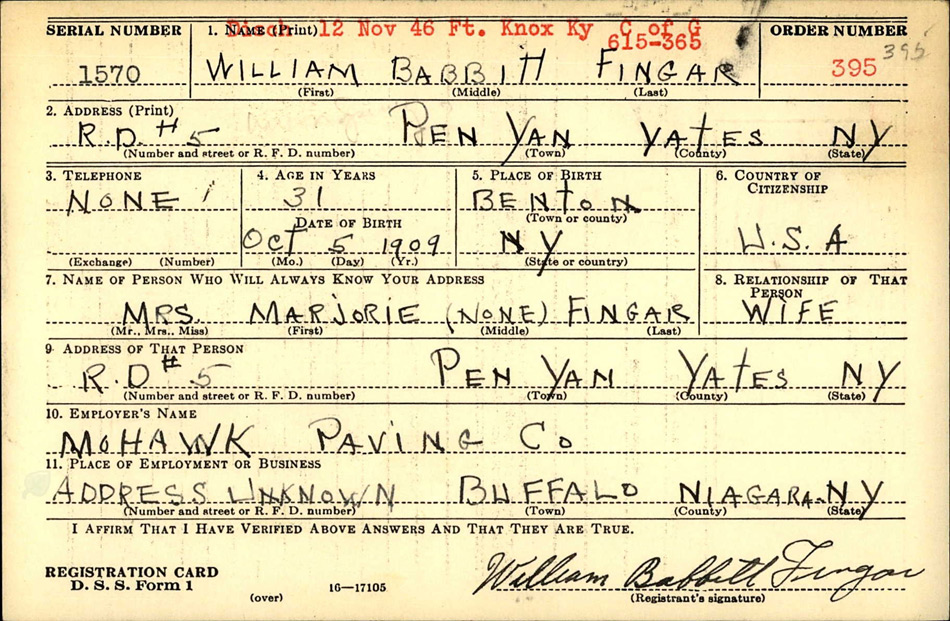 Disch 12 Nov 46 Ft. Knox Ky C of G
615-365
SERIAL NUMBER 1. NAME (Print) ORDER NUMBER
395
1570 WILLIAM BABBITT FINGAR 395
(First) (Middle) (Last)
2. ADDRESS (Print)
R.D. # 5 PEN YAN YATES NY
(Number and street or R. F. D. number) (Town) (County) (State)
3. TELEPHONE 4. AGE IN YEARS 5. PLACE OF BIRTH 6. COUNTRY OF CITIZENSHIP
NONE 31 BENTON
(Town or county)
DATE OF BIRTH
Oct 5 1909 NY U.S.A
(Exchange) (Number) (Mo.) (Day) (Yr.) (State or country)
7. NAME OF PERSON WHO WILL ALWAYS KNOW YOUR ADDRESS 8. RELATIONSHIP OF THAT PERSON
MRS. MARJORIE (NONE) FINGAR WIFE
(Mr., Mrs., Miss) (First) (Middle) (Last)
9. ADDRESS OF THAT PERSON
R.D # 5 PEN YAN YATES NY
(Number and street or R. F. D. number) (Town) (County) (State)
10. EMPLOYER'S NAME
MOHAWK PAVING CO
11. PLACE OF EMPLOYMENT OR BUSINESS
ADDRESS UNKNOWN BUFFALO NIAGARA NY
(Number and street or R. F. D. number) (Town) (County) (State)
I AFFIRM THAT I HAVE VERIFIED ABOVE ANSWERS AND THAT THEY ARE TRUE.
REGISTRATION CARD
D. S. S. Form 1 (over) 16—17105 William Babbitt Fingar
(Registrant's signature)